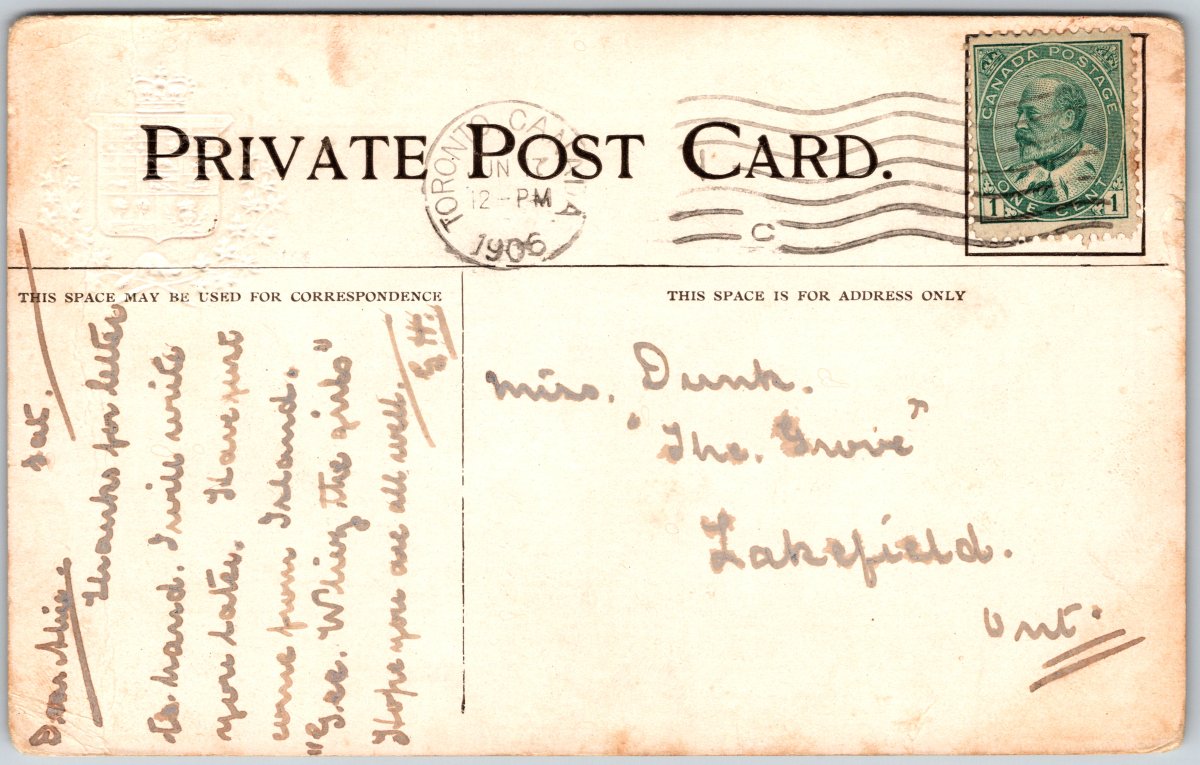 PRIVATE POST CARD.
TORONTO CANADA
12 - PM
1906
C
CANADA POSTAGE
1 ONE CENT 1
THIS SPACE MAY BE USED FOR CORRESPONDENCE
THIS SPACE IS FOR ADDRESS ONLY
Sat.
Dear Alice.
Thanks for letter
to. hand. I will write
you later. Have just
come from Island.
"Gee. Whizz the girls"
Hope you are all well.
E H.
Miss. Dunk.
"The. Grove"
Lakefield.
Ont.